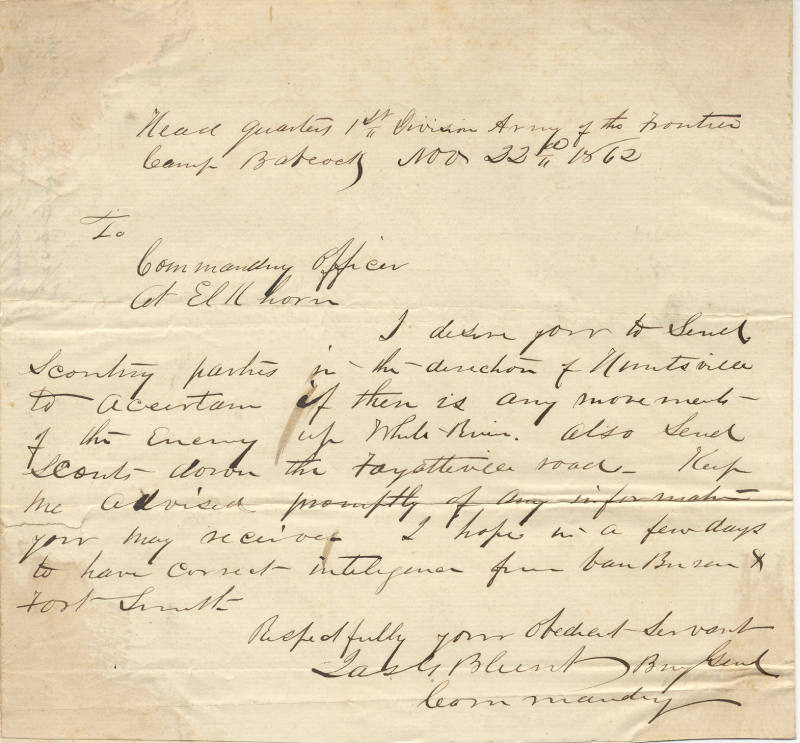 Head quarters 1st Division Army of the Frontier
Camp Babcock Nov 22d 1862
To
Commanding Officer
At Elkhorn
I desire your to Send
Scouting parties in the direction of Huntsville
to Acertain if there is any movements
of the Enemy up White River. Also Send
Scouts down the Fayetteville road - Keep
me advised promptly of any information
your may receive I hope in a few days
to have correct inteligence from Van Buren &
Fort Smith
Respectfully your Obedient Servant
Jas G Blunt Brig Genl
Commanding